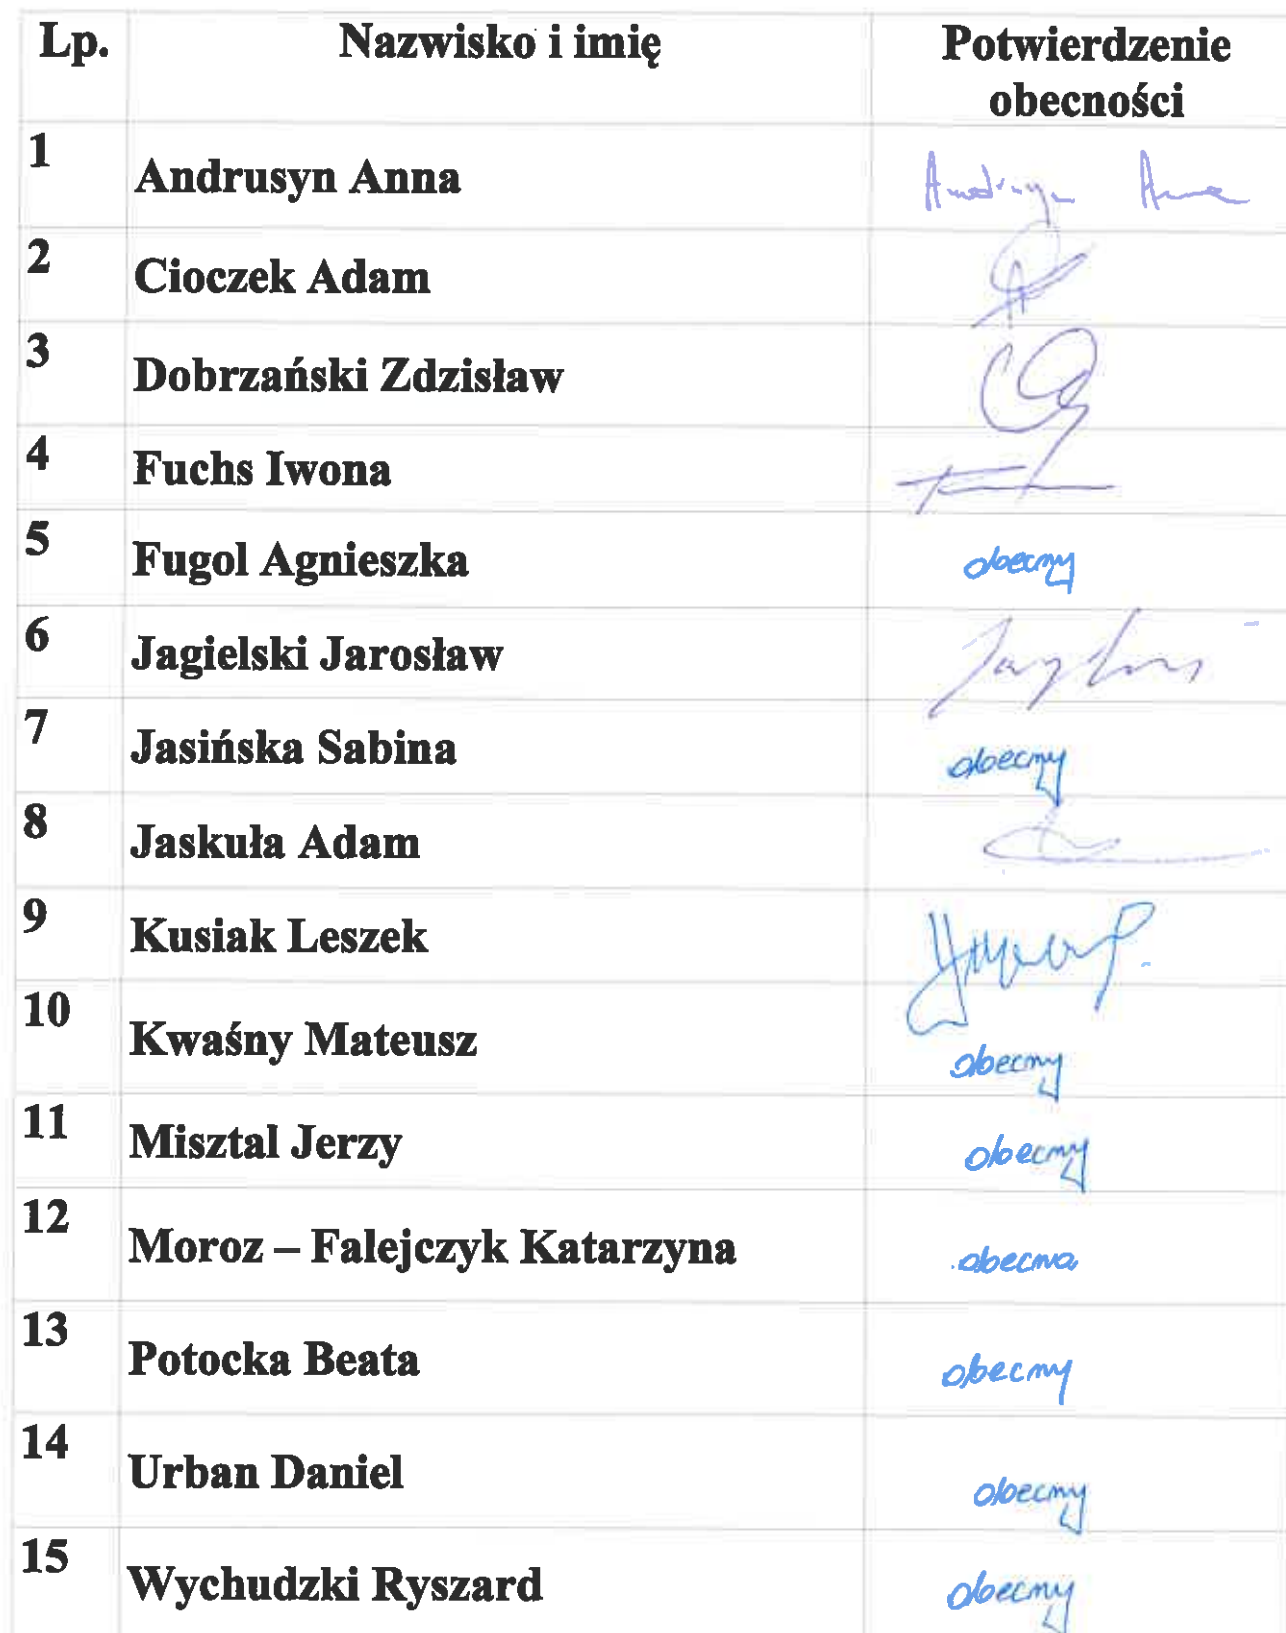 Lp. Nazwisko i imię Potwierdzenie
obecności
1 Andrusyn Anna Andrusyn Anna
2 Cioczek Adam
3 Dobrzański Zdzisław
4 Fuchs Iwona
5 Fugol Agnieszka obecny
6 Jagielski Jarosław
7 Jasińska Sabina obecny
8 Jaskuła Adam
9 Kusiak Leszek
10 Kwaśny Mateusz obecny
11 Misztal Jerzy obecny
12 Moroz – Falejczyk Katarzyna obecna
13 Potocka Beata obecny
14 Urban Daniel obecny
15 Wychudzki Ryszard obecny